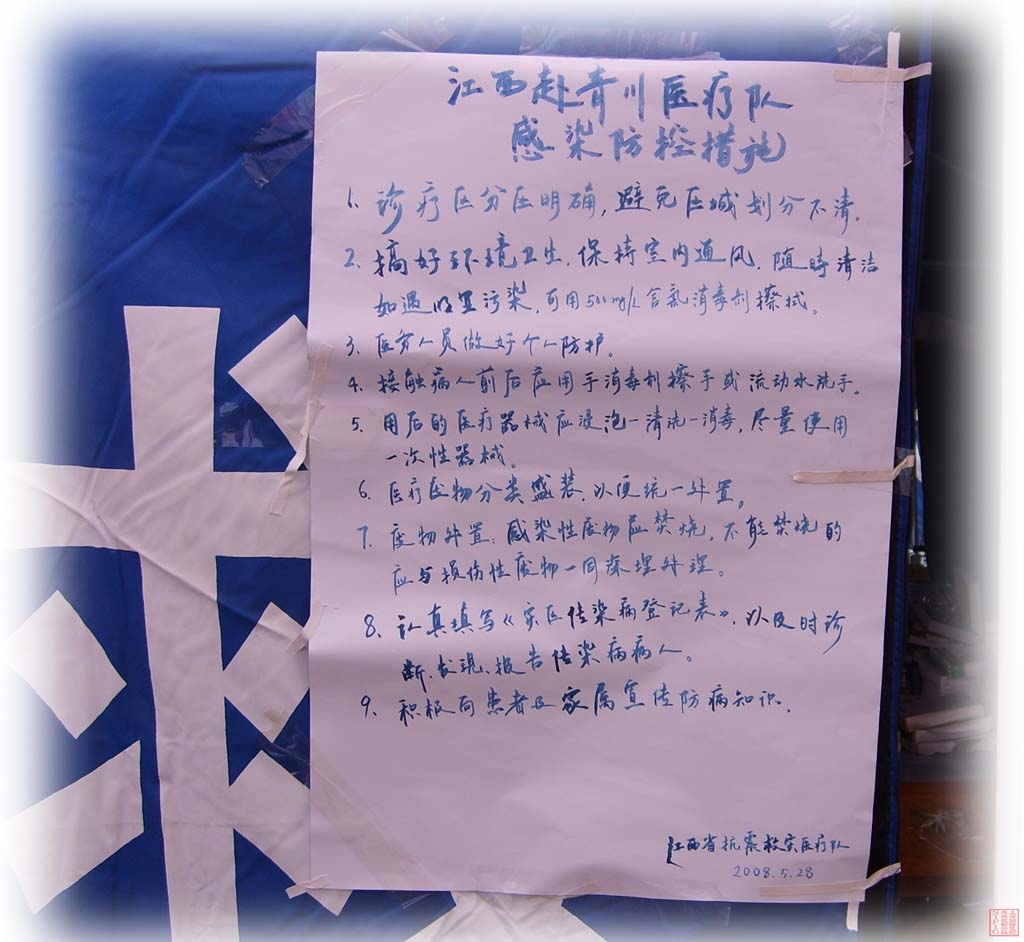 江西赴青川医疗队
感染防控措施
1. 诊疗区分区明确,避免区域划分不清.
2. 搞好环境卫生.保持室内通风.随时清洁
如遇明显污染,可用500mg/L含氯消毒剂擦拭。
3. 医务人员做好个人防护。
4. 接触病人前后应用手消毒剂擦手或流动水洗手。
5. 用后的医疗器械应浸泡-清洗-消毒,尽量使用
一次性器械。
6. 医疗废物分类盛装,以便统一处置。
7. 废物处置:感染性废物应焚烧,不能焚烧的
应与损伤性废物一同深埋处理。
8. 认真填写《灾区传染病登记表》,以及时诊
断、发现、报告传染病病人。
9. 积极向患者及家属宣传防病知识.
江西省抗震救灾医疗队
2008.5.28